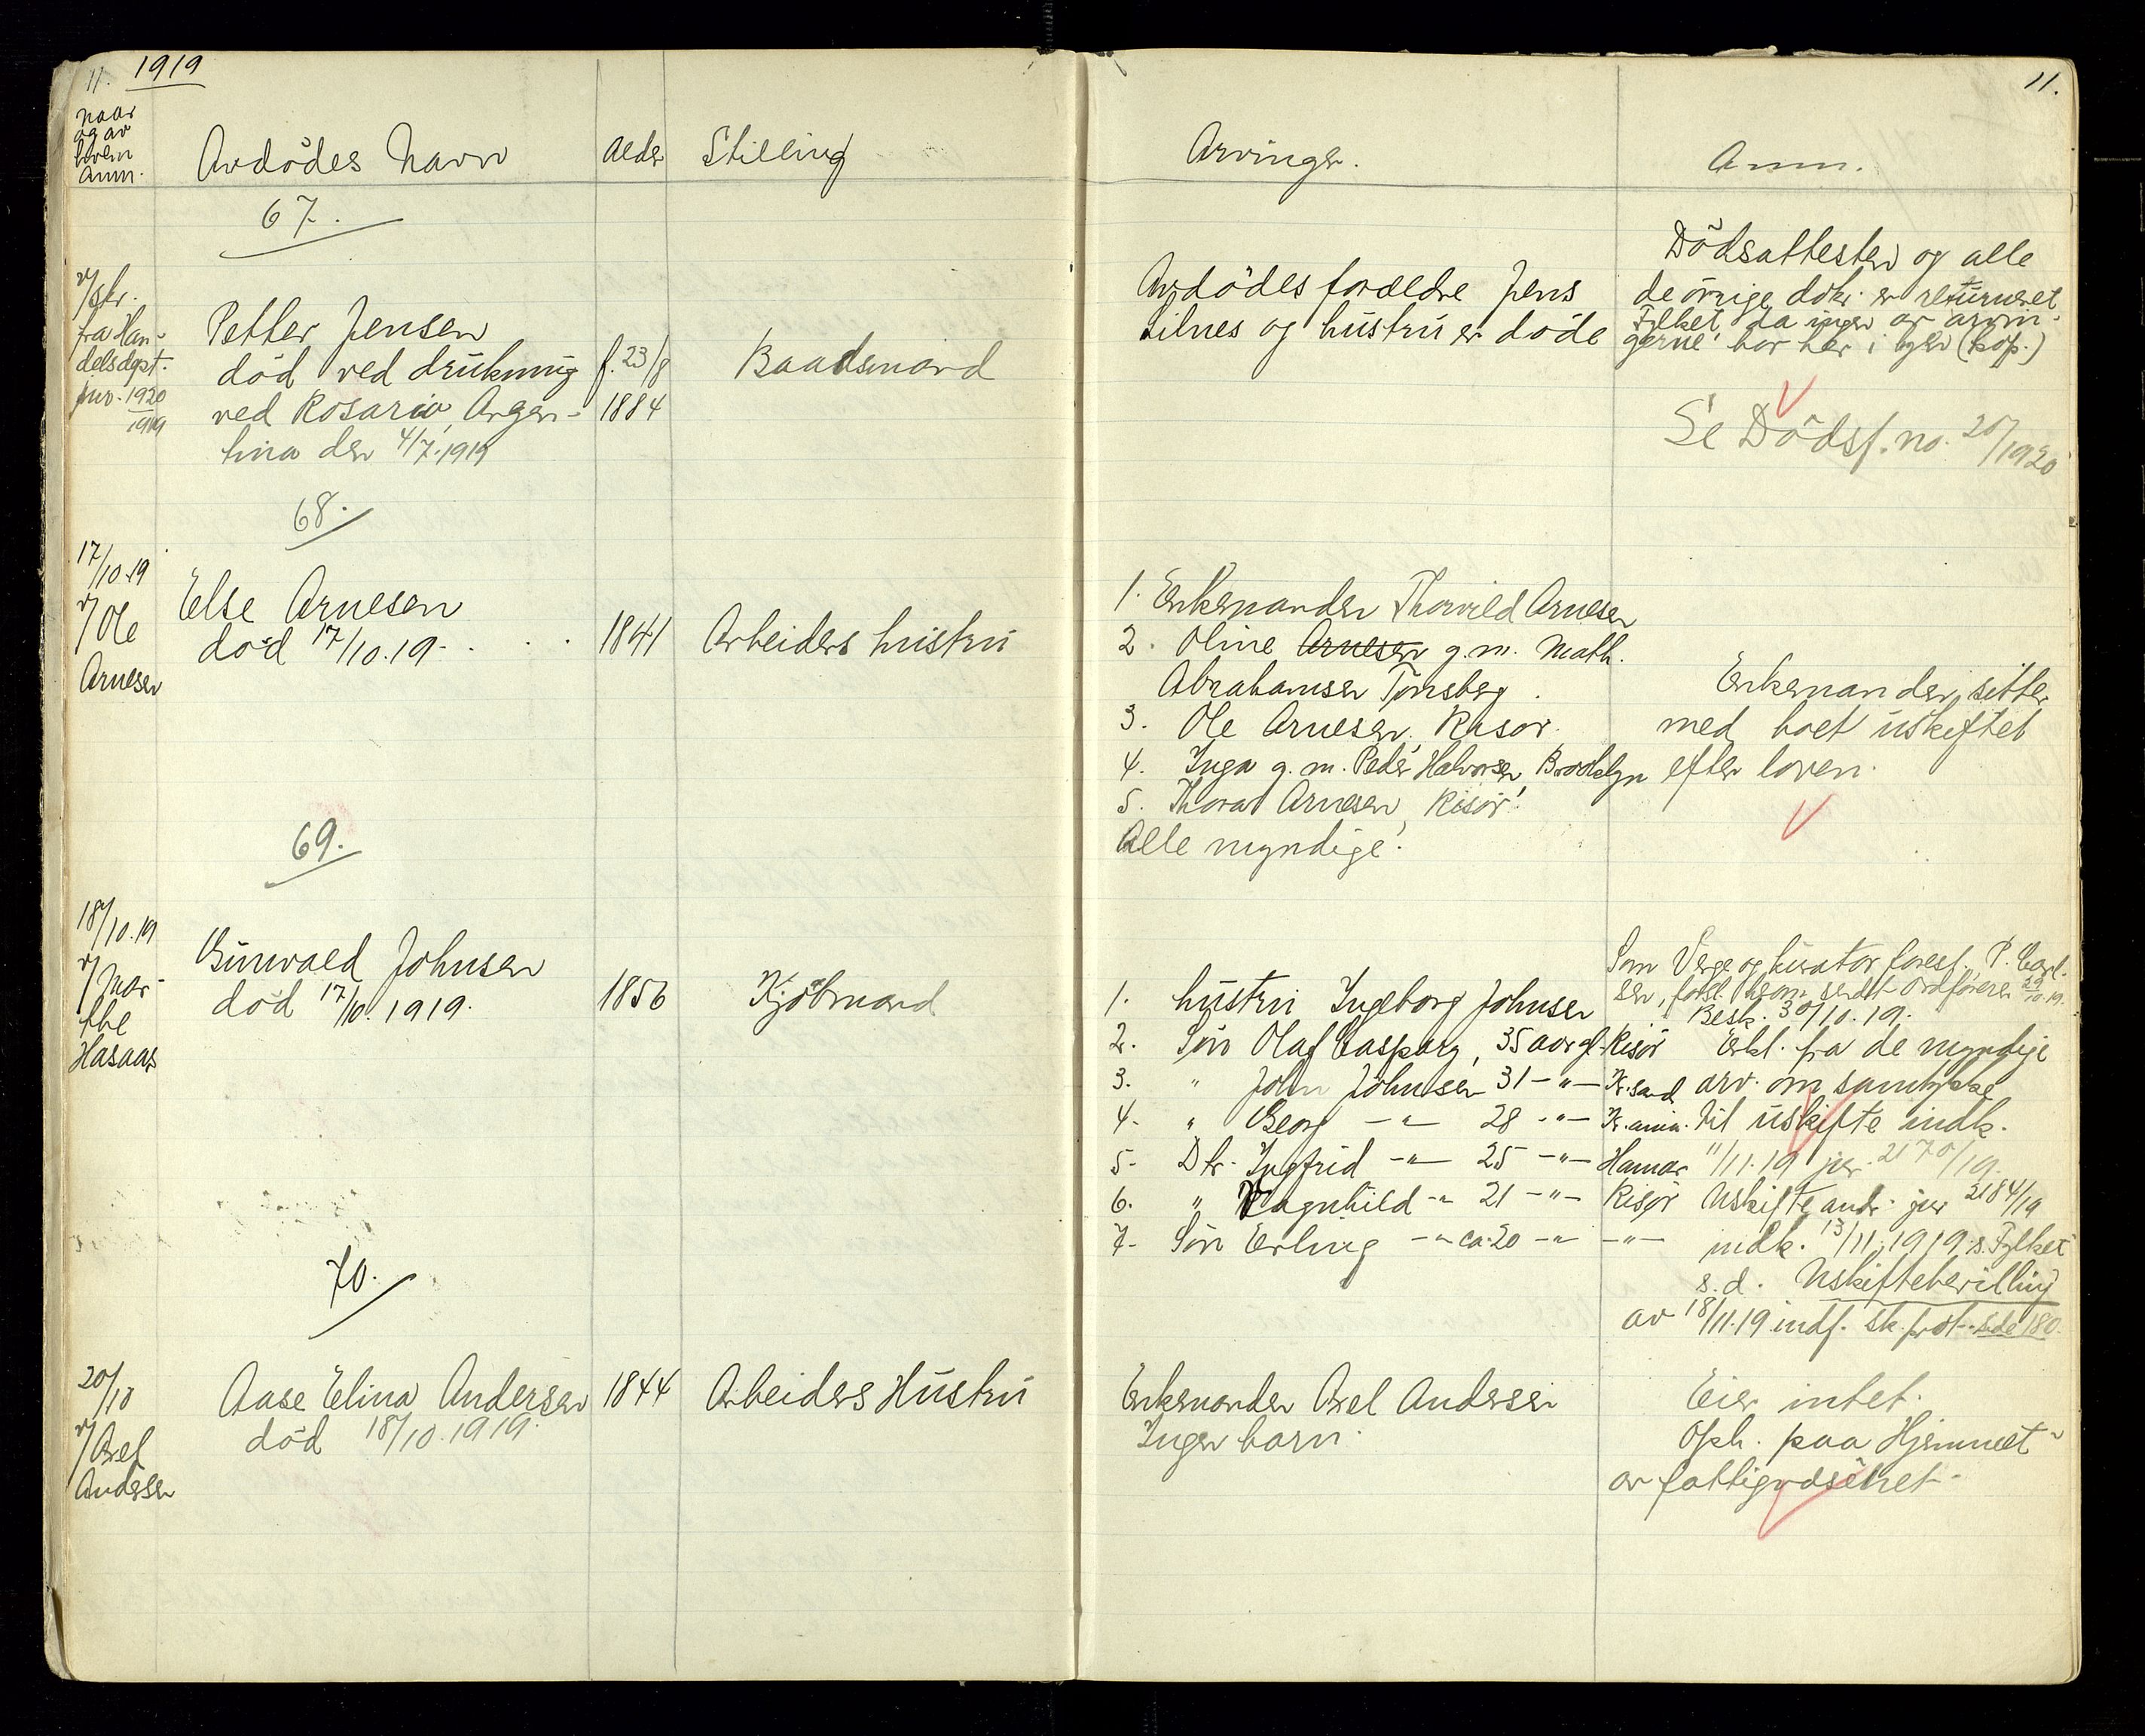 11. 1919
naar
og av
hvem
anm.
Avdödes Navn
Alder
Stilling
67.
v/skr.
fra Han-
delsdept.
jnr. 1920
1919
Petter Jensen
död ved drukning
ved Rosario, Argen-
tina den 4/7.1919
f. 23/8
1884
Baadsmand
68.
17/10.19
v/Ole
Arnesen
Else Arnesen
död 17/10.19.
1841
Arbeiders hustru
69.
18/10.19
v/Mar-
the
Hasaas
Gunvald Johnsen
död 17/10.1919.
1856
Kjöbmand
70.
20/10
v/Axel
Andersen
Aase Elina Andersen
död 18/10.1919.
1844
Arbeiders Hustru
11.
Arvinger.
Anm.
Avdödes forældre Jens
Silnes og hustru er döde
Dödsattesten og alle
de övrige dok. er returneret
Fylket da ingen av arvin-
gerne bor her i byen (kop.)
Se Dödsf. no. 20/1920
1. Enkemanden Thorvild Arnesen
2. Oline Arnesen g.m. Math.
Abrahamsen Tönsberg.
3. Ole Arnesen, Risör.
4. Inga g.m. Peder Halvorsen, Brooklyn
5. Thora Arnesen, Risör.
Alle myndige.
Enkemanden sitter
med boet uskiftet
efter loven.
1. hustru Ingeborg Johnsen
2. Sön Olaf Caspary, 35 aar gl. Risör
3. " John Johnsen 31 -"- Kr.sand
4. " Georg -"- 28 -"- Kr.ania.
5. Dtr. Ingfrid -"- 25 -"- Hamar
6. " Ragnhild -"- 21 -"- Risör
7. Sön Erling -"- ca. 20 -"- -"-
Som Verge og kurator foresl. P. Carl-
sen, forsl. herom sendt Ordföreren 29/10.19.
Besk. 30/10.19.
Erkl. fra de myndige
arv. om samtykke
til uskifte indk.
11/11.19 jnr. 2170/19.
Uskifte andr. jnr 2184/19
indk. 13/11.1919 s. Fylket
s.d. Uskiftebevilling
av 18/11.19 indf. sk. prot. side 180.
Enkemanden Axel Andersen
Ingen barn.
Eier intet.
Oph. paa Hjemmet
av fattigvæsenet.